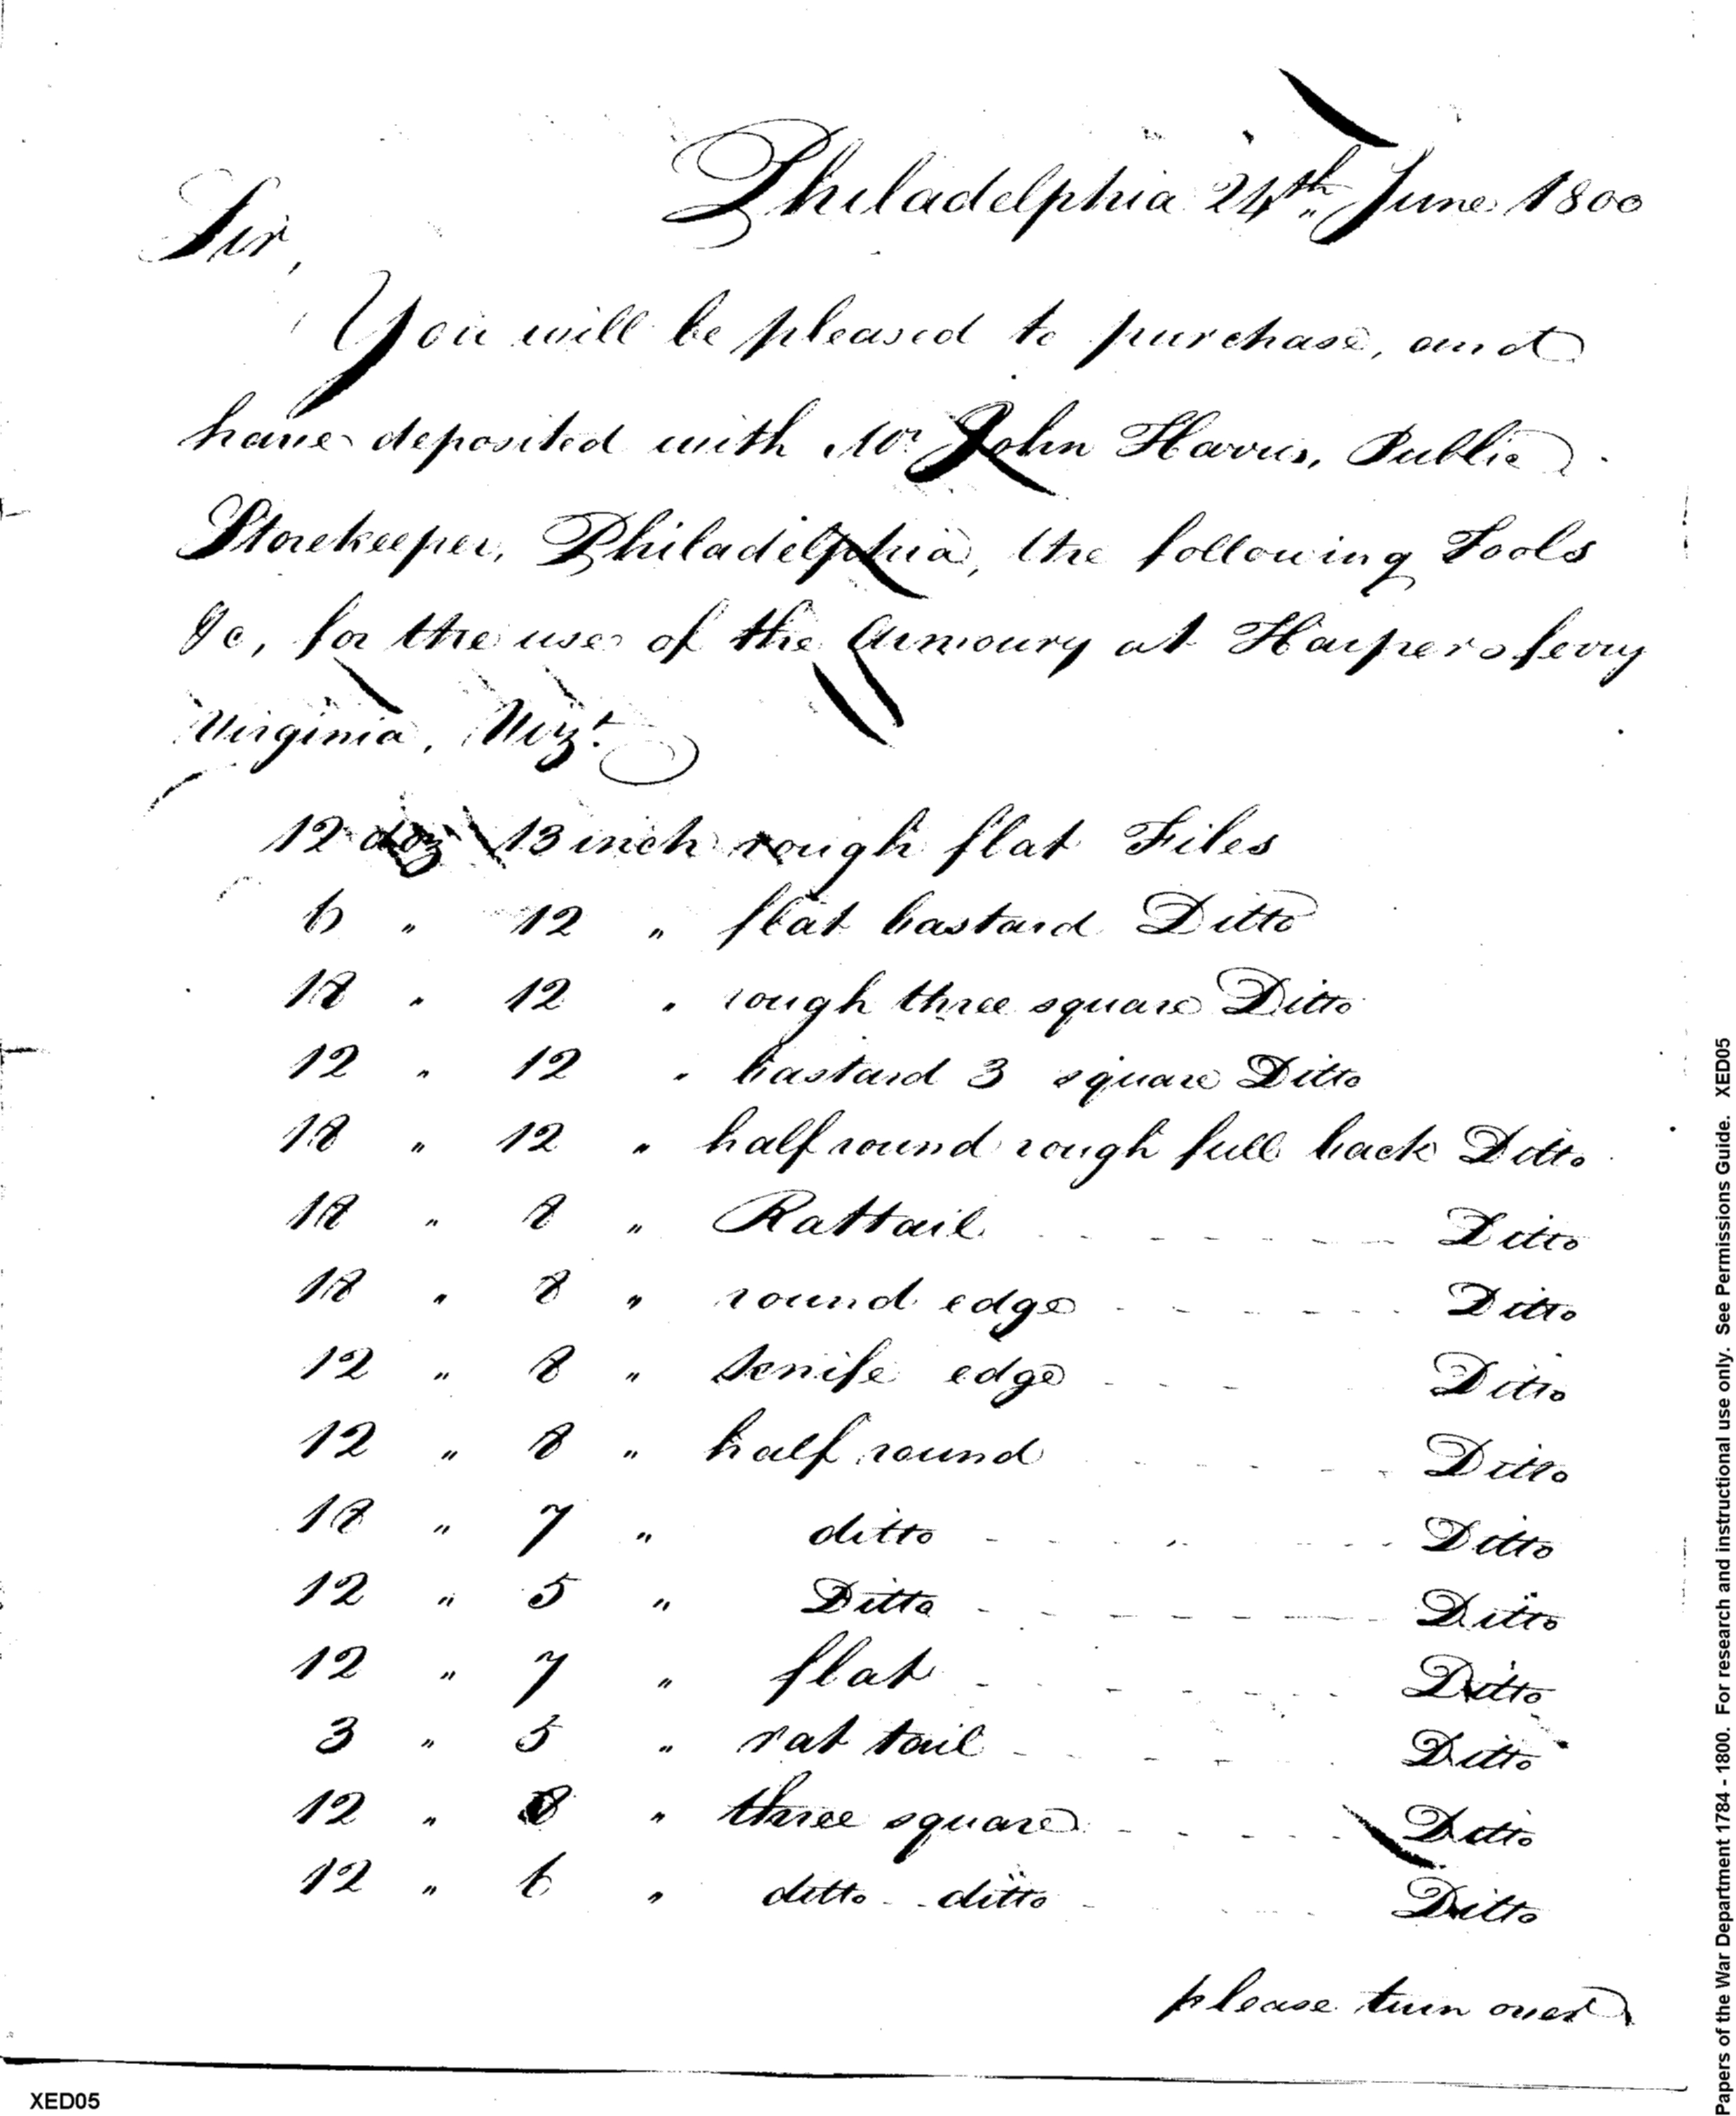 Philadelphia 24th June 1800
Sir,
You will be pleased to purchase, and
have deposited with Mr John Harris, Public
Storekeeper, Philadelphia, the following Tools
&c, for the use of the Armoury at Harpersferry
Virginia, Vizt.
12 doz 13 inch rough flat Files
6 " 12 " flat bastard Ditto
18 " 12 " rough three square Ditto
12 " 12 " bastard 3 square Ditto
18 " 12 " half round rough full back Ditto
18 " 8 " Rattail Ditto
18 " 8 " round edge Ditto
12 " 8 " knife edge Ditto
12 " 8 " half round Ditto
18 " 7 " ditto Ditto
12 " 5 " Ditto Ditto
12 " 7 " flat Ditto
3 " 5 " rat tail Ditto
12 " 8 " three square Ditto
12 " 6 " ditto ditto Ditto
please turn over
XED05
Papers of the War Department 1784 - 1800. For research and instructional use only. See Permissions Guide. XED05